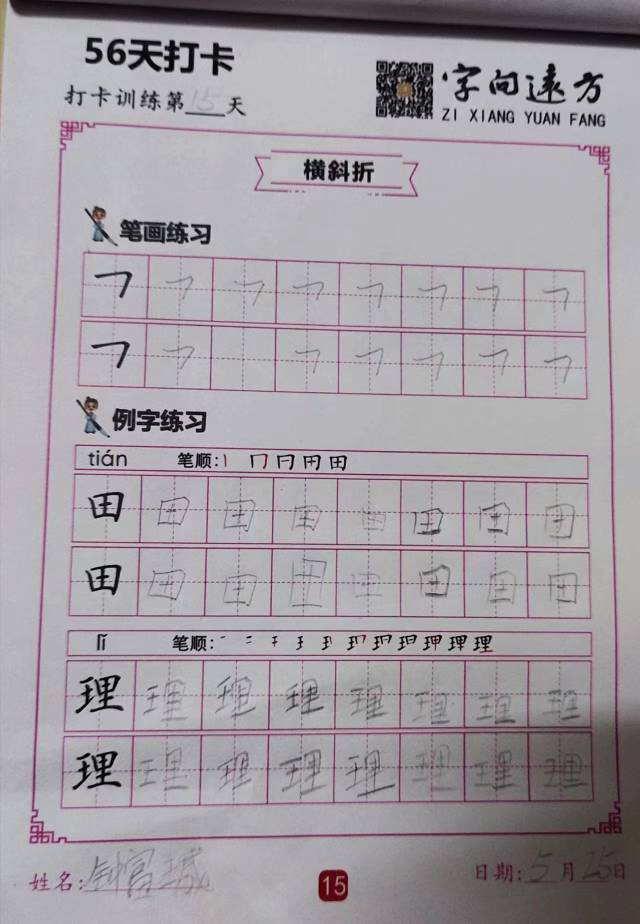 56天打卡
打卡训练第15天
字向远方
ZI XIANG YUAN FANG
横斜折
笔画练习
㇇ ㇇ ㇇ ㇇ ㇇ ㇇ ㇇ ㇇
㇇ ㇇ ㇇ ㇇ ㇇ ㇇ ㇇
例字练习
tián 笔顺:丨 冂 冃 田 田
田 田 田 田 田 田 田 田
田 田 田 田 田 田 田 田
lǐ 笔顺:
理 理 理 理 理 理 理 理
理 理 理 理 理 理 理 理
姓名:钟富城
15
日期:5月25日